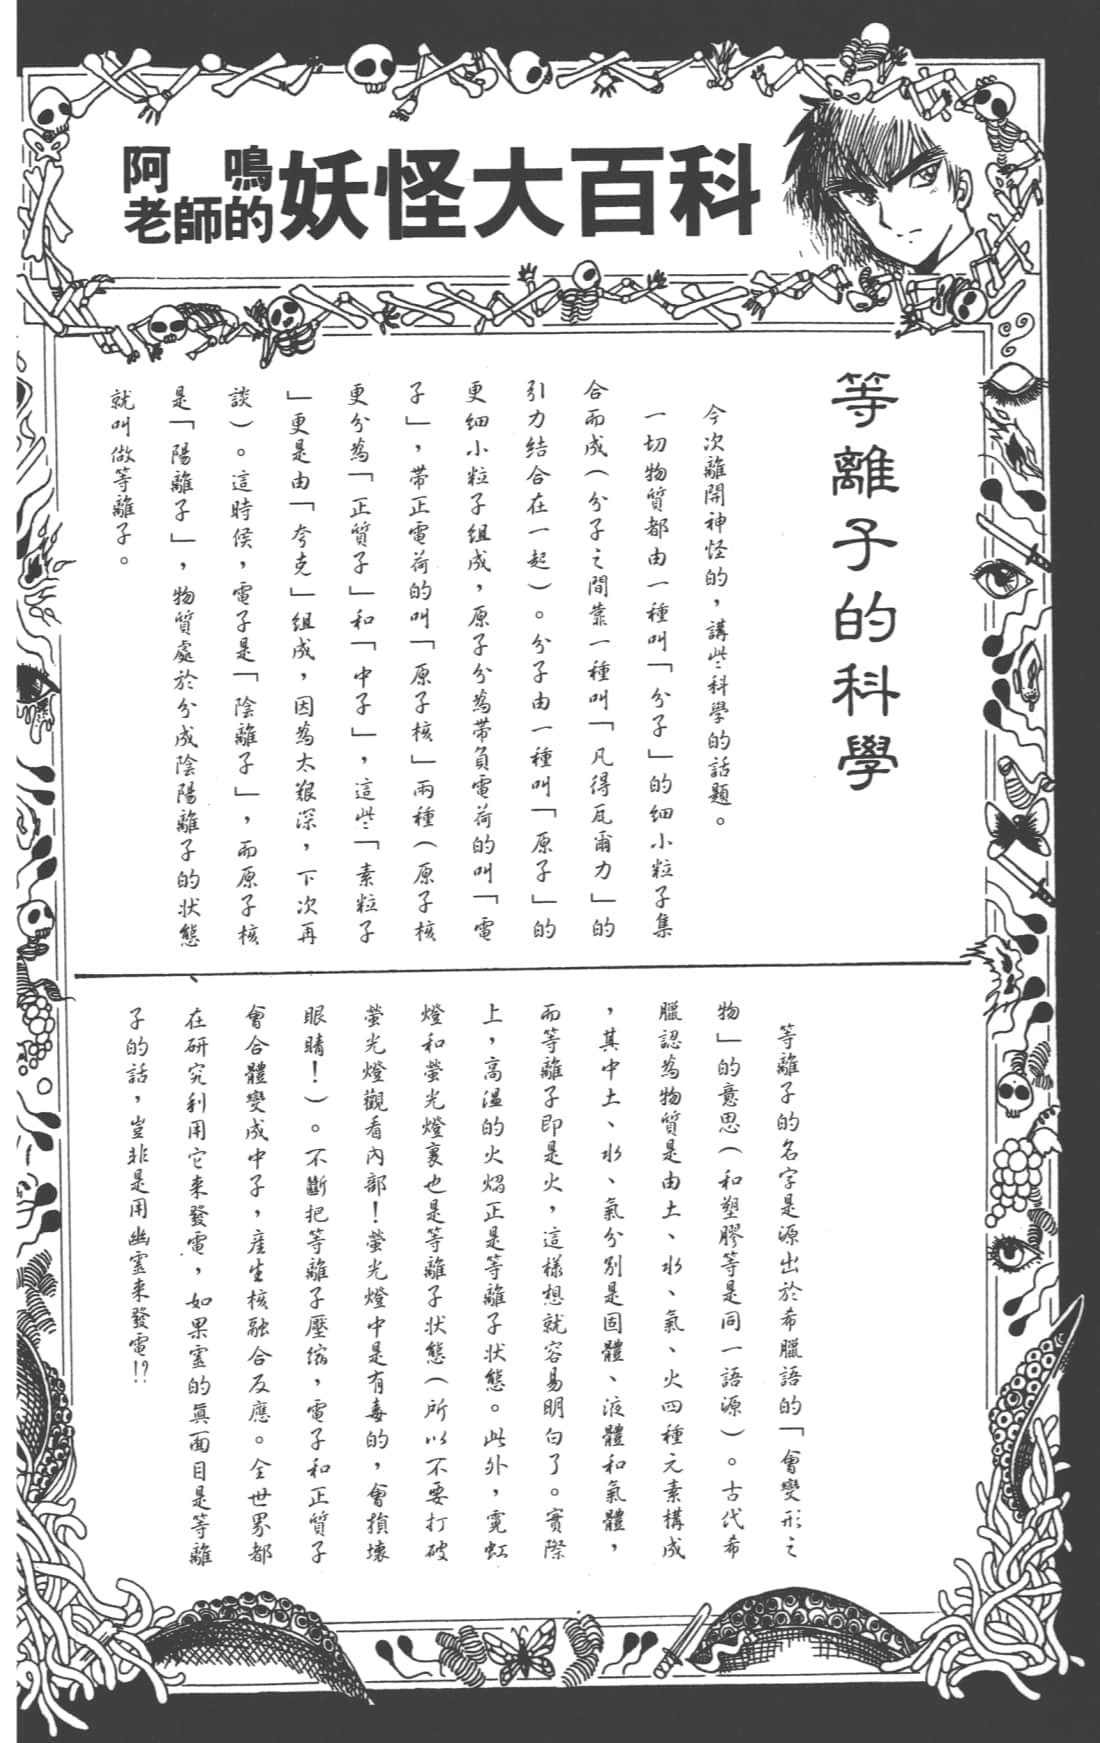 阿鳴
老師的
妖怪大百科
等離子的科學
今次離開神怪的，講些科學的話題。
一切物質都由一種叫「分子」的細小粒子集
合而成（分子之間靠一種叫「凡得瓦爾力」的
引力結合在一起）。分子由一種叫「原子」的
更細小粒子組成，原子分為帶負電荷的叫「電
子」，帶正電荷的叫「原子核」兩種（原子核
更分為「正質子」和「中子」，這些「素粒子
」更是由「夸克」組成，因為太艱深，下次再
談）。這時侯，電子是「陰離子」，而原子核
是「陽離子」，物質處於分成陰陽離子的状態
就叫做等離子。
等離子的名字是源出於希臘語的「會變形之
物」的意思（和塑膠等是同一語源）。古代希
臘認為物質是由土、水、氣、火四種元素構成
，其中土、水、氣分別是固體、液體和氣體，
而等離子即是火，這樣想就容易明白了。實際
上，高溫的火焰正是等離子状態。此外，霓虹
燈和螢光燈裏也是等離子状態（所以不要打破
螢光燈觀看內部！螢光燈中是有毒的，會損壞
眼睛！）。不斷把等離子壓縮，電子和正質子
會合體變成中子，產生核融合反應。全世界都
在研究利用它来發電，如果靈的真面目是等離
子的話，豈非是用幽靈来發電!?